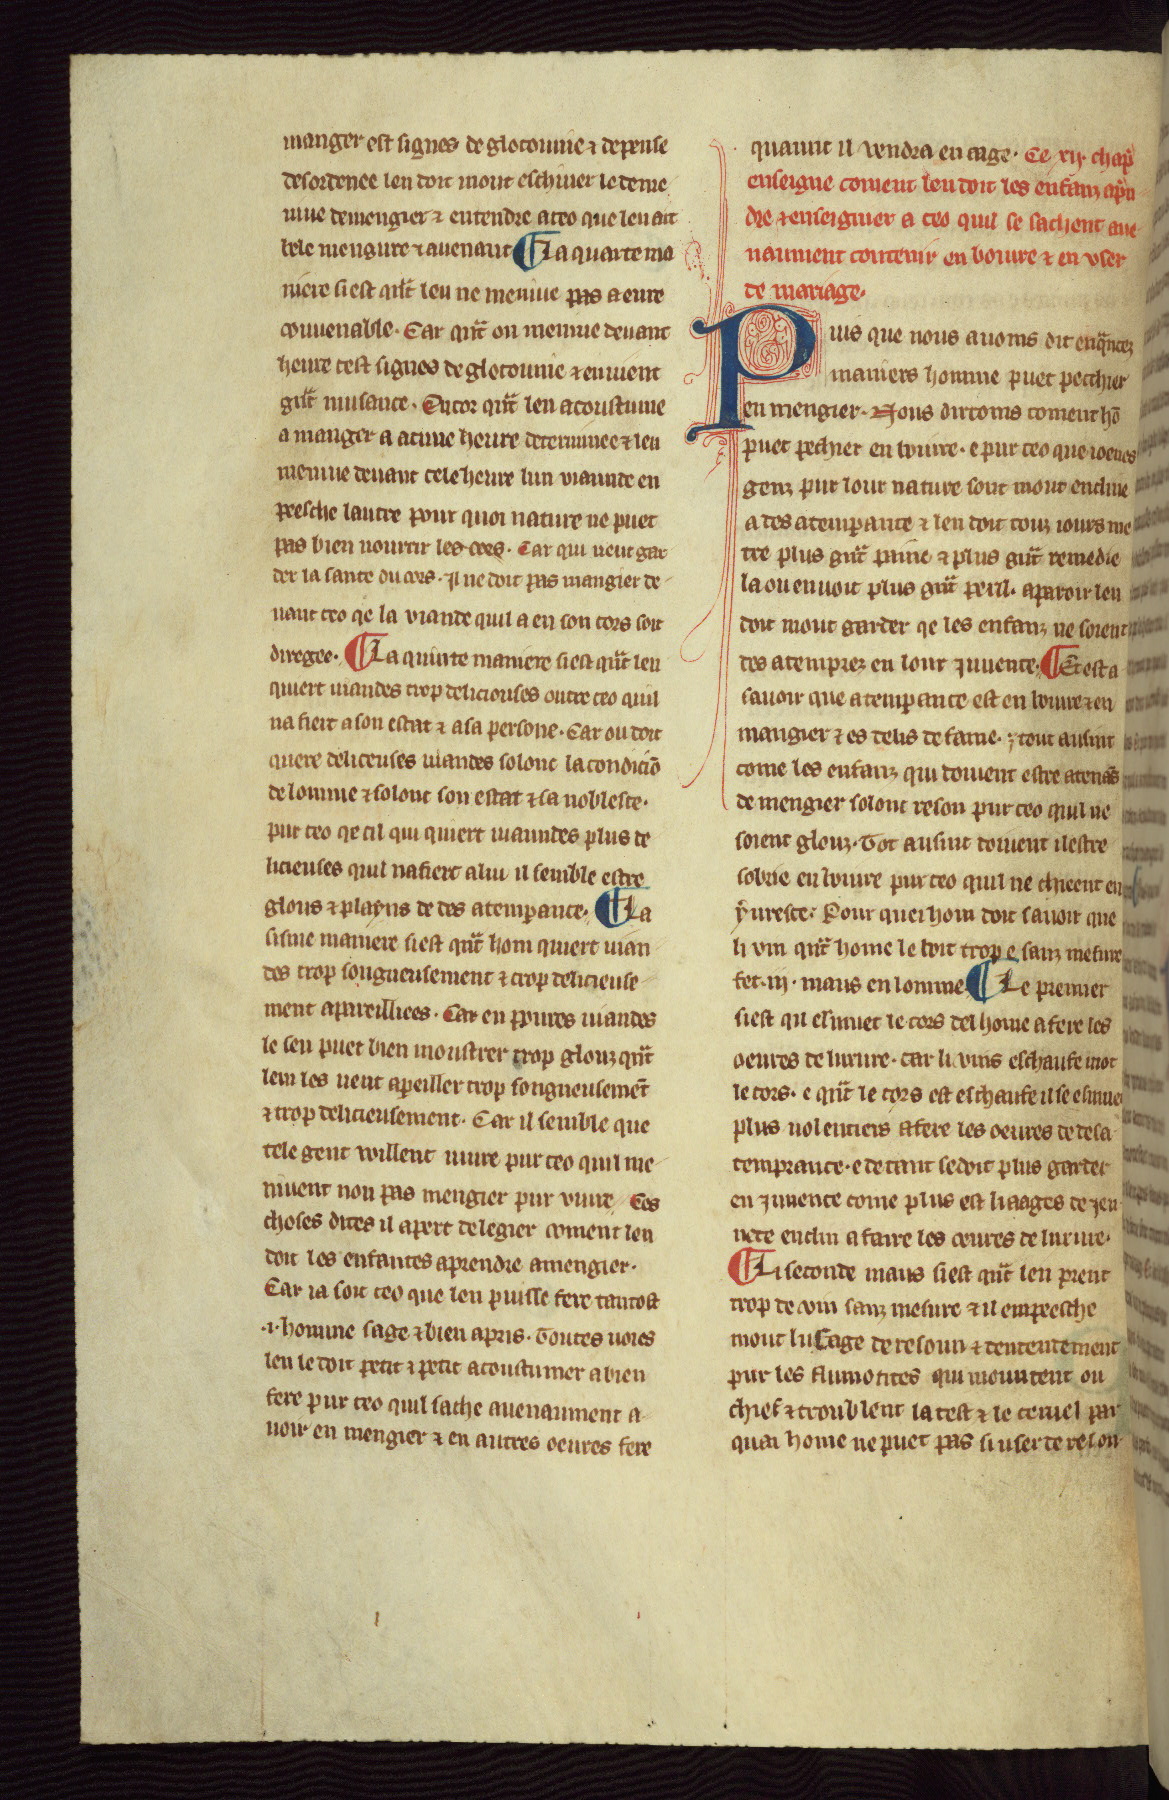 manger est signes de glotounie ⁊ depense
desordenee len doit mout eschiuer le deme
niue demengier ⁊ entendre a ceo que len ait
bele mengure ⁊ auenaut ¶ La quarte ma
niere si est qnt len ne meniue pas a eure
couuenable. Car qnt on meniue deuant
heure cest signes de glotounie ⁊ en uient
gnt nuisance. Encor qnt len acoustume
a manger a acune heure determinee ⁊ len
meniue deuant cele heure lun uiaunde en
peesche lautre pour quoi nature ne puet
pas bien nourrir les cors. Car qui ueut gar
der la sante du cors. Il ne doit pas mangier de
uant ceo qe la viande quil a en son cors soit
diregee. ¶ La quinte maniere si est qnt len
quiert uiandes trop deliciouses outre ceo quil
nafiert a son estat ⁊ a sa persone. Car ou doit
quere deliceuses uiandes solonc la condiciō
de lomme ⁊ solonc son estat ⁊ sa nobleste.
pur ceo qe cil qui quiert uiaundes plus de
licieuses quil nafiert a lui il semble estre
glous ⁊ playns de des atemperance. ¶ La
sisme maniere si est qnt hom quiert uian
des trop songneusement ⁊ trop delicieuse
ment apareilliees. Car en poures uiandes
le seu puet bien moustrer trop glouz qnt
lem les ueut apeiller trop songneusemēt
⁊ trop delicieusement. Car il semble que
tele gent willent uiure pur ceo quil me
niuent non pas mengier pur viure Ces
choses dites il apert de legier coment len
doit les enfantes aprendre amengier.
Car ia soit ceo que len puisse fere tantost
.i. homme sage ⁊ bien apris. Toutes uoies
len le doit petit ⁊ petit acoustumer a bien
fere pur ceo quil sache auenaument a
uoir en mengier ⁊ en autres oeures fere
quaunt il vendra en aage. Ce xij. chap
enseigne coment len doit les enfanz apn
dre ⁊ enseignier a ceo quil se sachent aue
naument contenir en boiure ⁊ en vser
de mariage.
Puis que nous auoms dit en qntez
maniers homme puet pecchier
en mengier. Nous diroms coment hō
puet pechier en boiure. e pur ceo que ioenes
genz pur lour nature sont mout encline
a des atemperance ⁊ len doit touz iours me
tre plus gnt paine ⁊ plus gnt remedie
la ou en uoit plus gnt peril. aparoir len
doit mout garder qe les enfanz ne soient
des atemprez en lour iuuente. ¶ Et est a
sauoir que atemperance est en boiure ⁊ en
mangier ⁊ es delis de fame. ⁊ tout ausint
come les enfanz qui doiuent estre atenās
de mengier solonc reson pur ceo quil ne
soient glouz. Tot ausint doiuent il estre
sobrie en boiure pur ceo quil ne chieent en
yureste. Pour quei hom doit sauoir que
li vin qnt home le boit trop e sanz mesure
fet .iij. maus en lomme ¶ Le premier
si est qil esmuet le cors del home a fere les
oeures de luxure. car li vins eschaufe mot
le cors. e qnt le cors est eschaufe il se esmue
plus uolentiers a fere les oeures de desa
temprance. e de tant se doit plus garder
en iuuence come plus est li aages de jeu
nete enclin a faire les oeures de luxure.
¶ Li seconde maus si est qnt len prent
trop de vin sanz mesure ⁊ il empeesche
mout lusage de resoun ⁊ dentendement
pur les fumosites qui mountent ou
chief ⁊ troublent la test ⁊ le ceruel par
quai home ne puet pas si user de reson